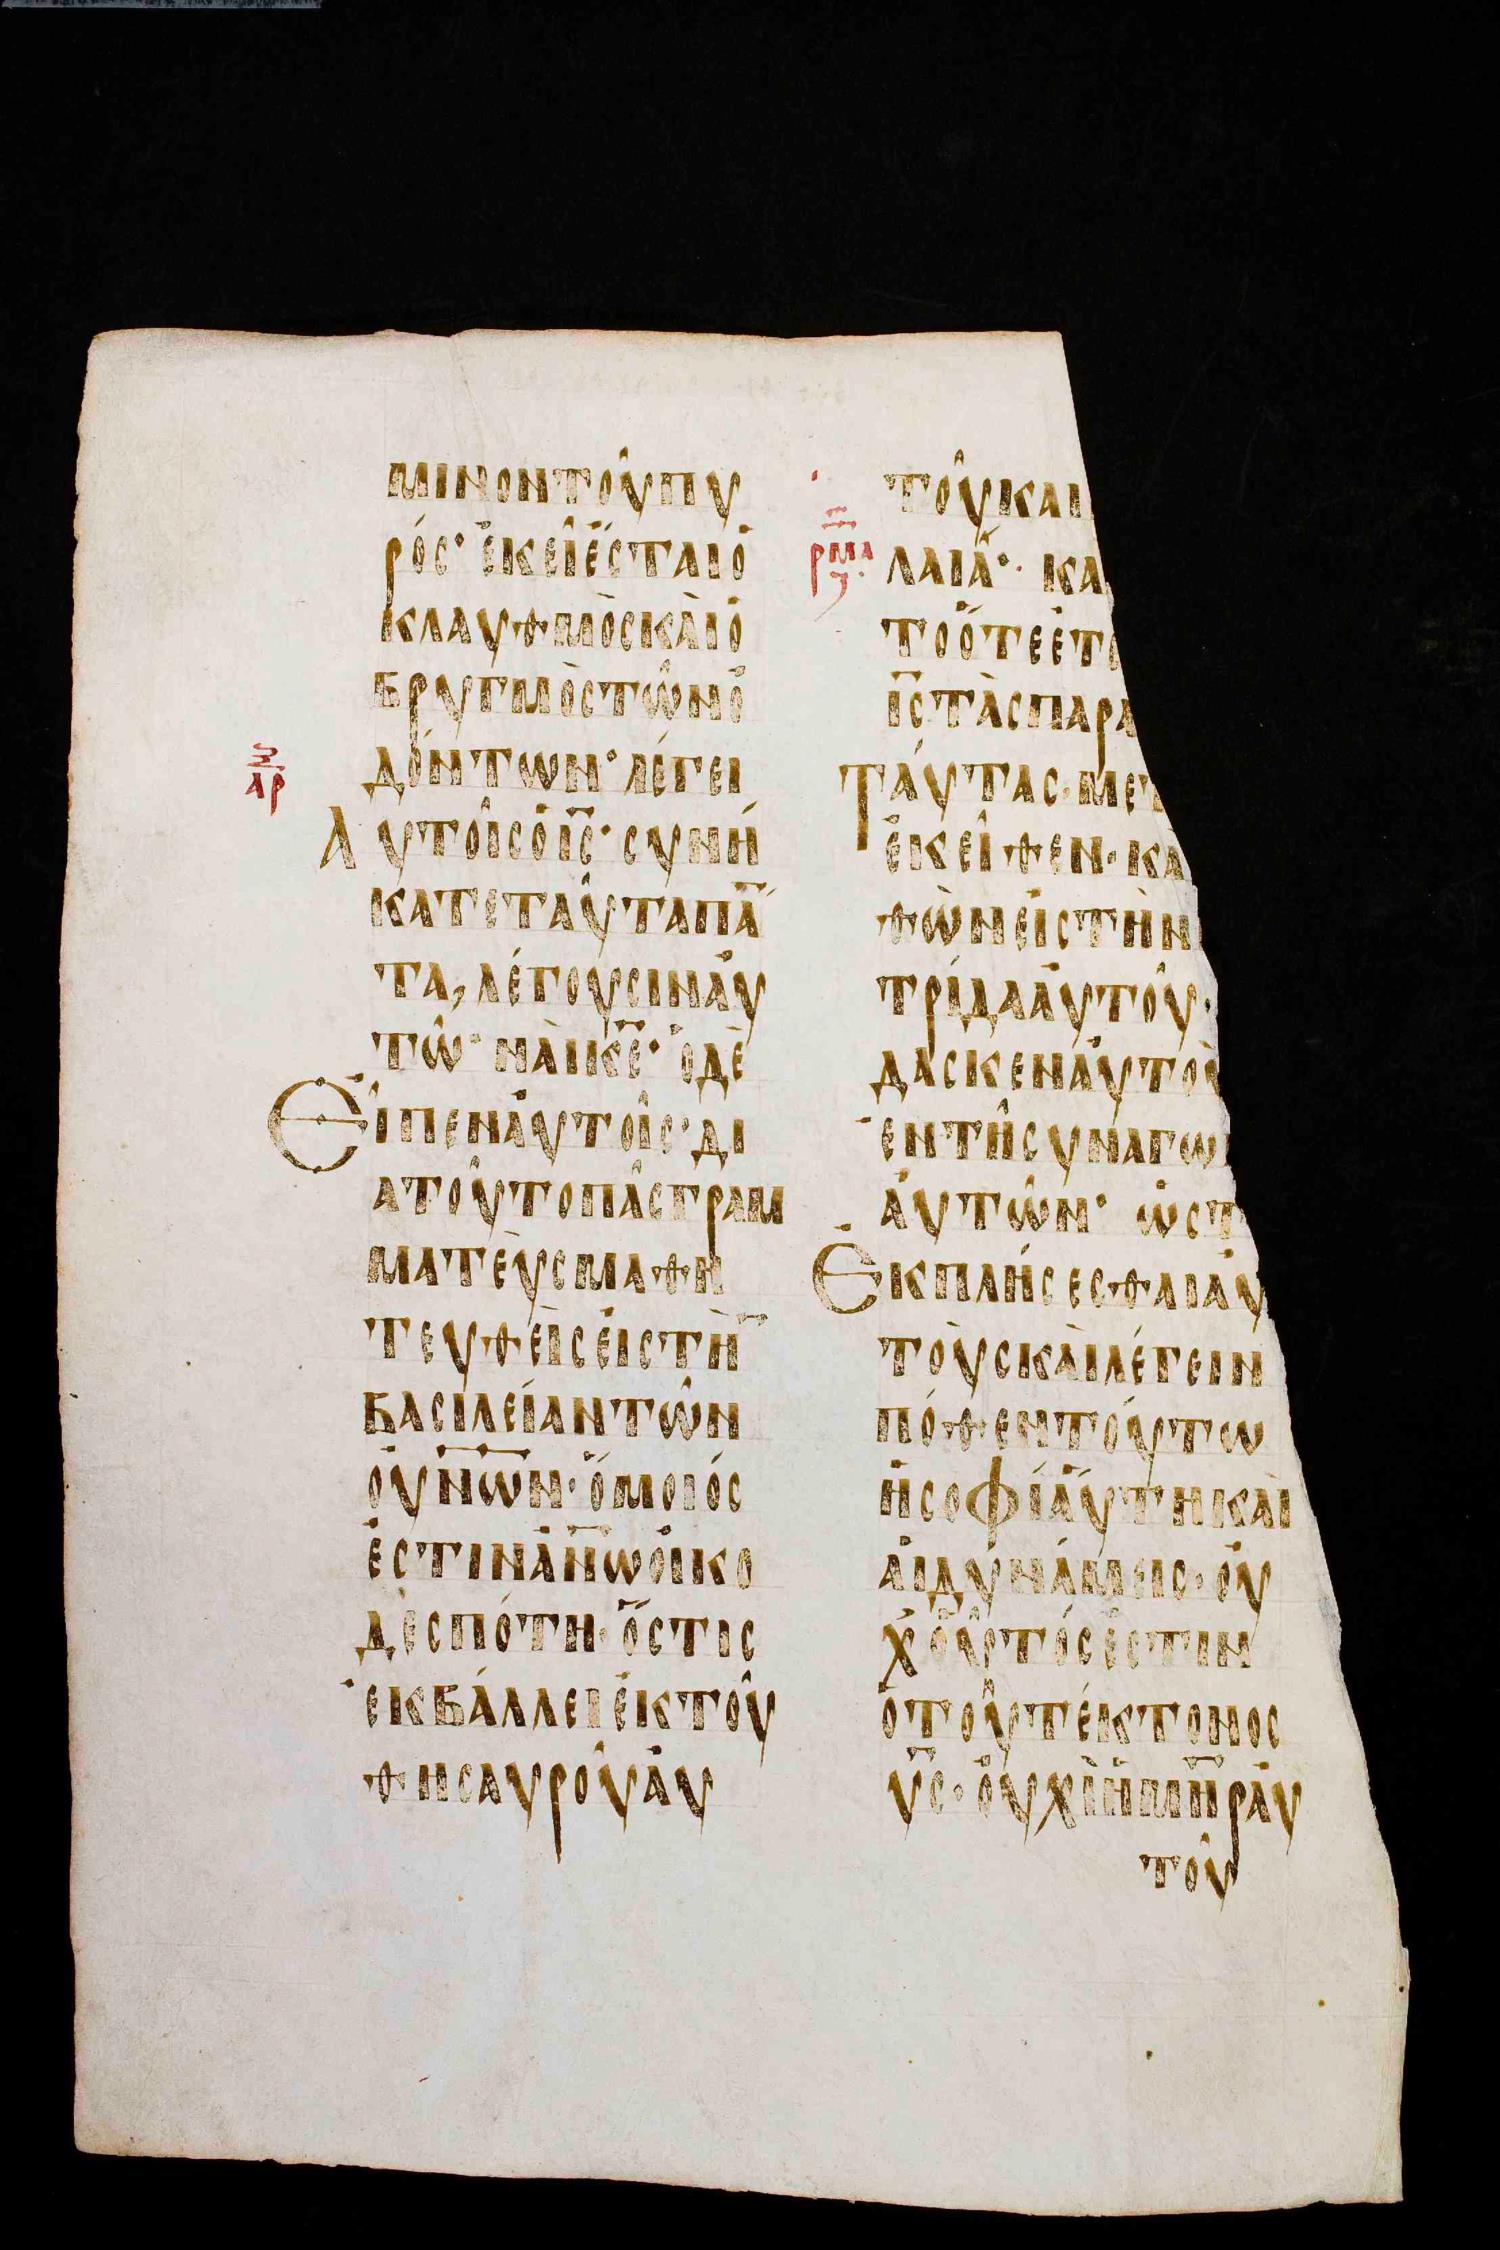 μινοντοῦπυ
ρός· ἐκεῖἔσταιὁ
κλαυθμὸσκαὶὁ
βρυγμὸστῶνὀ
δόντων· λέγει
αρ
Αὐτοῖσὁῑς̄· συνή
κατεταῦταπᾱ́
τα, λέγουσιναὐ
τῶ· ναὶκ̄ε̄· ὁδὲ
Εἶπεναὐτοῖς· δι
ατοῦτοπᾶσγραμ
ματεὺσμαθη
τευθεὶσεἰστὴ̄
βασιλείαντῶν
οὐν̄ω̄ν̄· ὅμοιός
ἐστινἀν̄ω̄οἰκο
δεσπότη· ὅστις
ἐκβάλλειἐκτοῦ
θησαυροῦαὐ
τοῦκαι
ρμα
ζ
λαιά·· κα
τοὅτεἐτε
ῑς̄τὰσπαρα
Ταύτας· μετ
ἐκεῖθεν· κα
θὼνεἰστὴν
τρίδααὐτοῦ·
δασκεναὐτοὺ
ἐντῆσυναγω
αὐτῶν· ὡστ
Ἐκπλήσεσθαιαὐ
τοὺσκαὶλέγειν
πόθεντούτω
ἡσοφίααὕτηκαὶ
αἱδυνάμεις· οὐ
χοὗτόσἐστιν
ὁτοῦτέκτονος
ῡς̄· οὐχὶἡμ̄η̄ραὐ
τοῦ